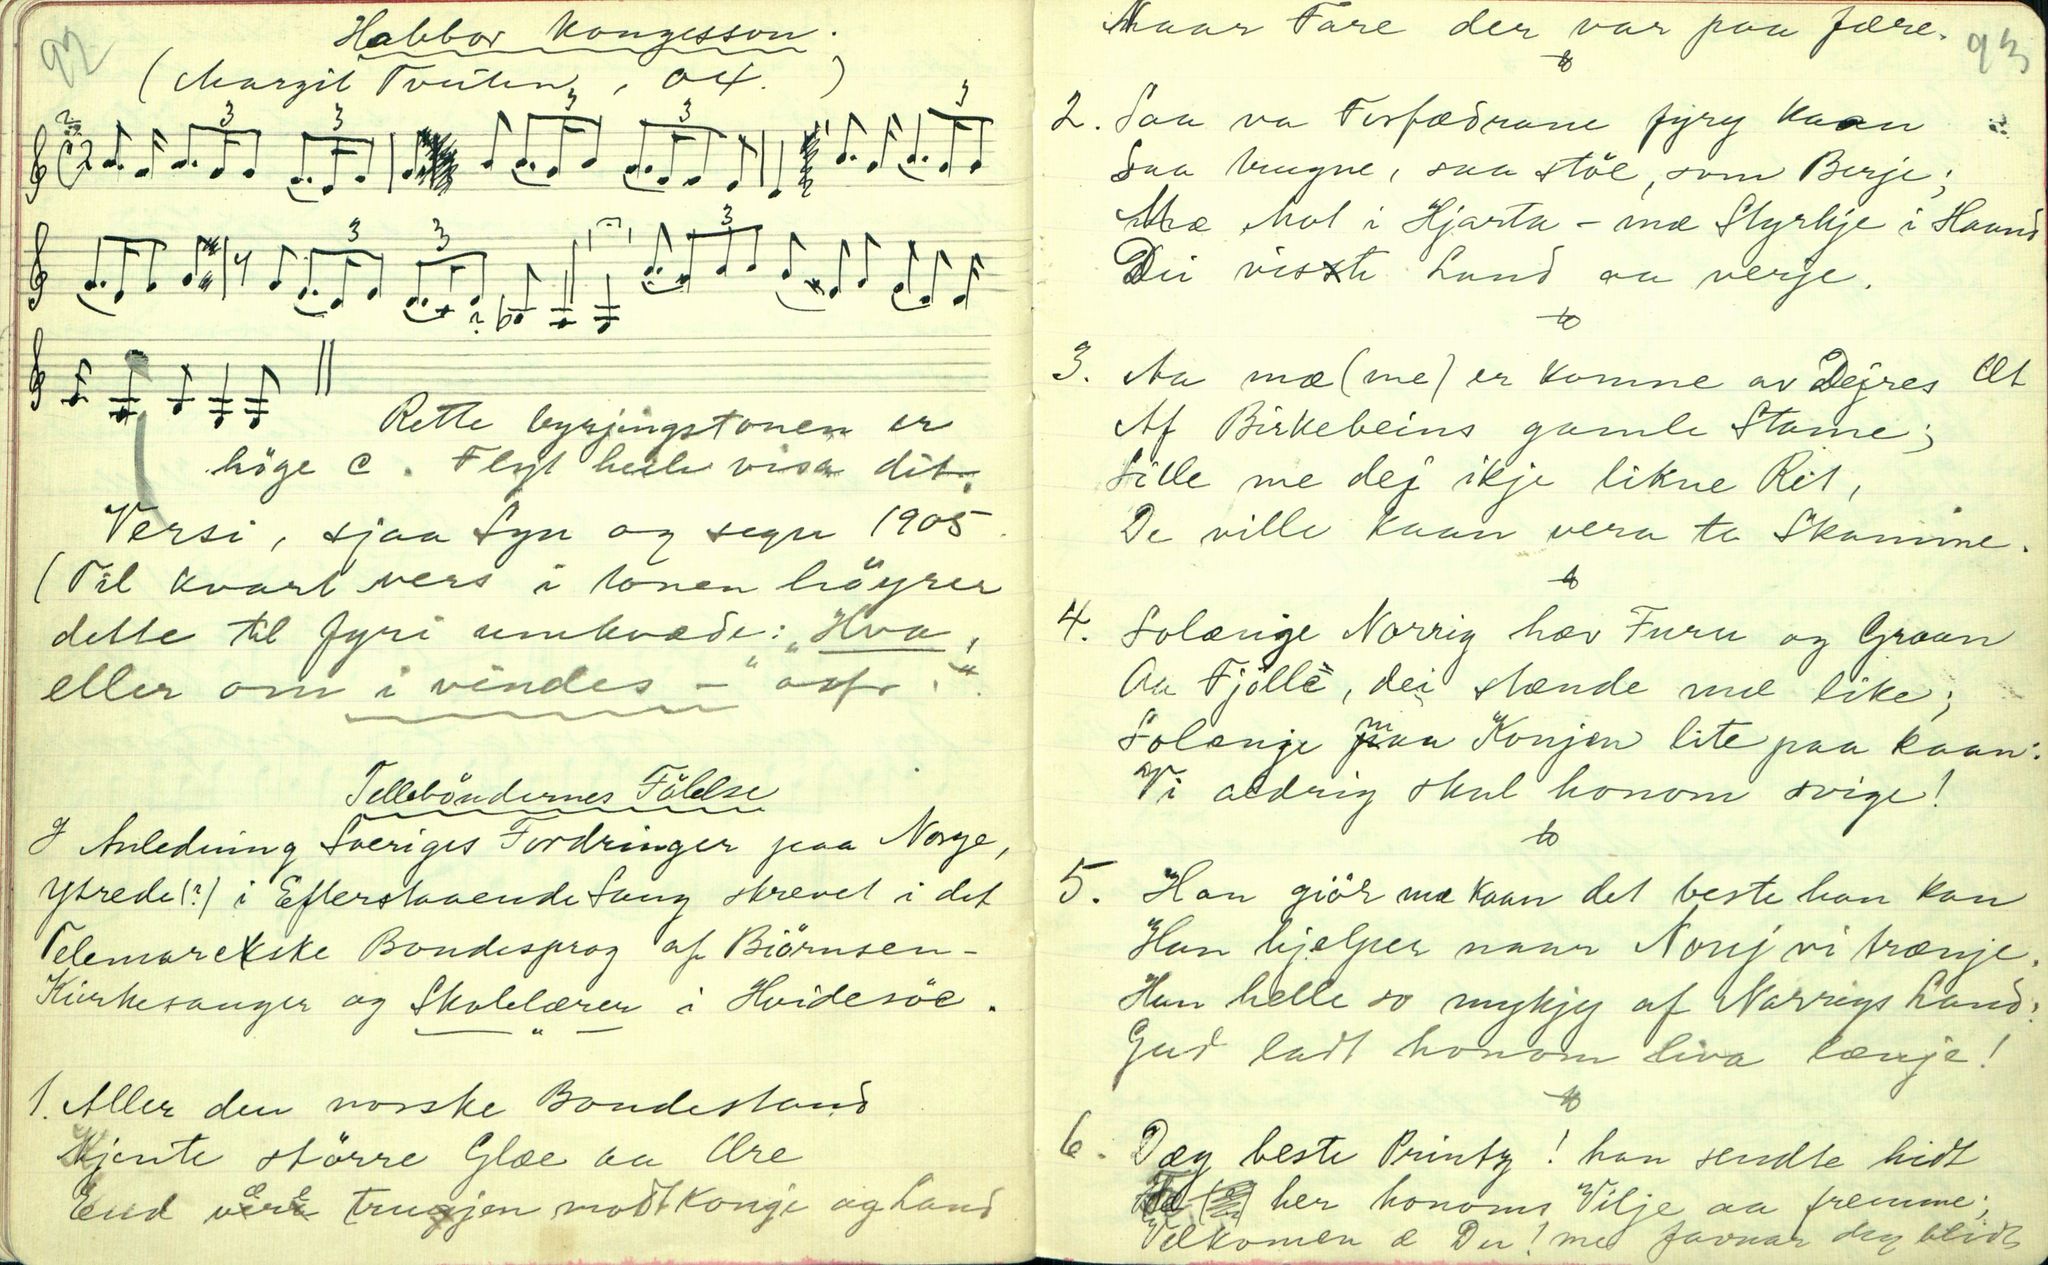 92
Habbor Kongesson.
(Margit Tveiten, 04. )
3 3 3 3 3
3 3 3
Rette byrjingstonen er
höge c. Flyt heile visa dit.
Versi, sjaa Syn og segn 1905.
(Til kvart vers i tonen höyrer
dette til fyri umkvæde: "Hva,
eller om i vindes -" osfr.".
Tellebøndernes Fölelse
I Anledning Sveriges Fordringer paa Norge,
ytrede(?) i Efterstaaende Sang skrevet i det
Telemarckske Bondesprog af Biörnsen-
Kirkesanger og Skolelærer i Hvidesöe.
1. Aller den norske Bondestand
Kjente större Glæe aa Ære
End være trugjen modt Konge og Land
93
Naar Fare der var paa fære.
2. Saa va Forfædrane fyry kaan
Saa trugne, saa stöe, som Berje;
Mæ Mot i Hjarta - mæ Styrkje i Haand
Dei visste Land aa verje.
3. Aa mæ (me) er komne av Dejres Æt
Af Birkebeins gamle Stame;
Sille me dej ikje likne Ret,
De ville kaan vera to Skamme.
4. Solænge Norrig hæv Furu og Graan
Aa Fjölle, dei stænde mæ like;
Solænje maa Konjen lite paa kaan:
Vi aldrig skul honom svige!
5. Han giör mæ kaan det beste han kan
Han hjelper naar Nouj vi trænje.
Han helle so mykjy af Norrigs Land:
Gud ladt honom liva længe!
6. Dæg beste Printz! han sendte hidt
her honoms Vilje aa fremme;
Velkomen æ Du! me favnar deg blidt